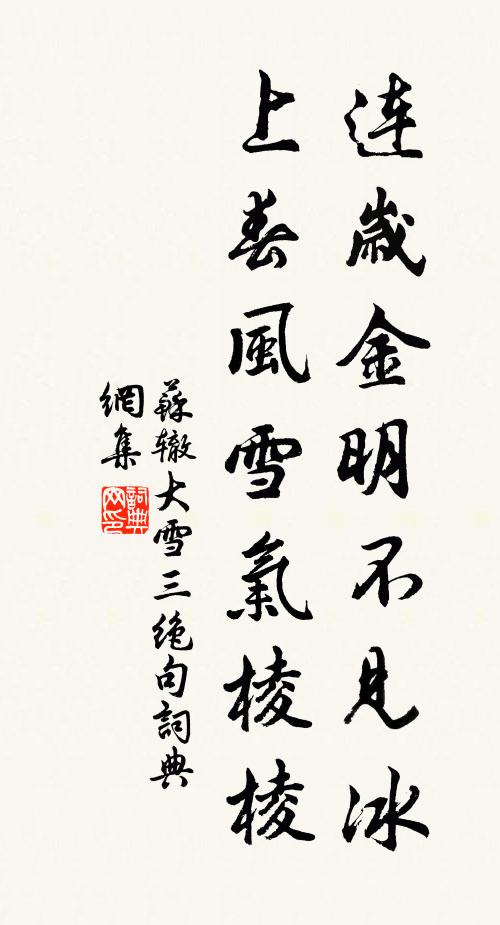 连歲金明不見冰
上春風雪氣棱棱
蘇轍大雪三絶句詞典
網集
詞典
网印